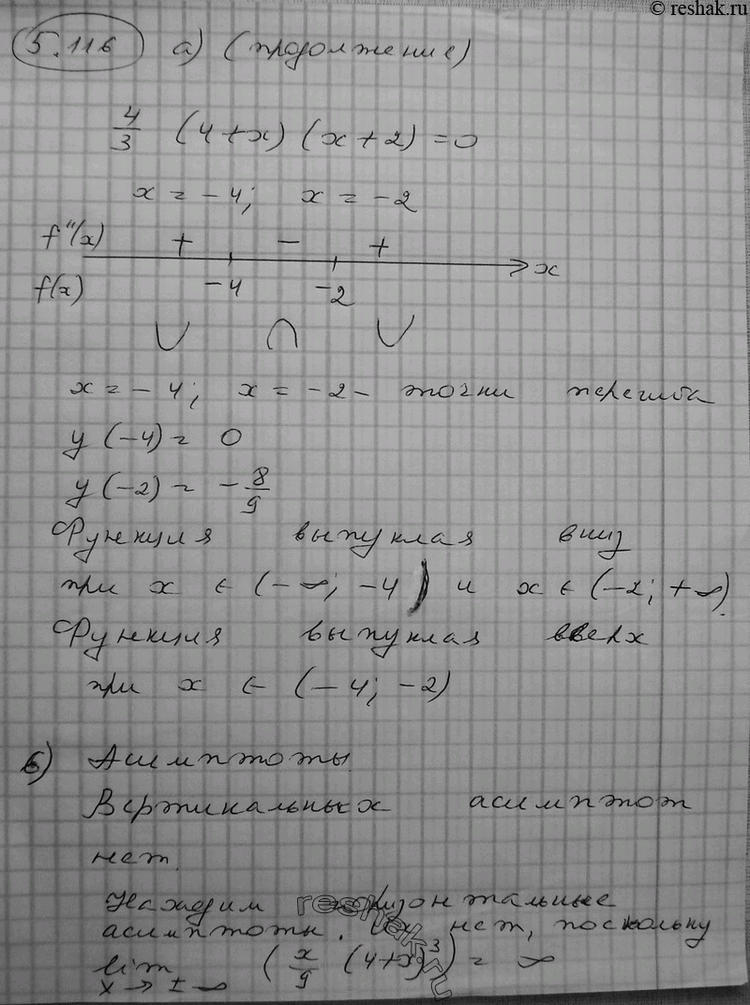 © reshak.ru
5.116 а) (продолжение)
4/3 (4+x) (x+2) = 0
x = -4; x = -2
f''(x) + - +
-4 -2 x
f(x)
∪ ∩ ∪
x = -4; x = -2 - точки перегиба
y (-4) = 0
y (-2) = - 8/9
Функция выпуклая вниз
при x ∈ (-∞; -4) и x ∈ (-2; +∞).
Функция выпуклая вверх
при x ∈ (-4; -2)
6) Асимптоты.
Вертикальных асимптот
нет.
Найдим горизонтальные
асимптоты. Их нет, поскольку
lim x→±∞ (x/9 (4+x)³) = ∞
reshak.ru